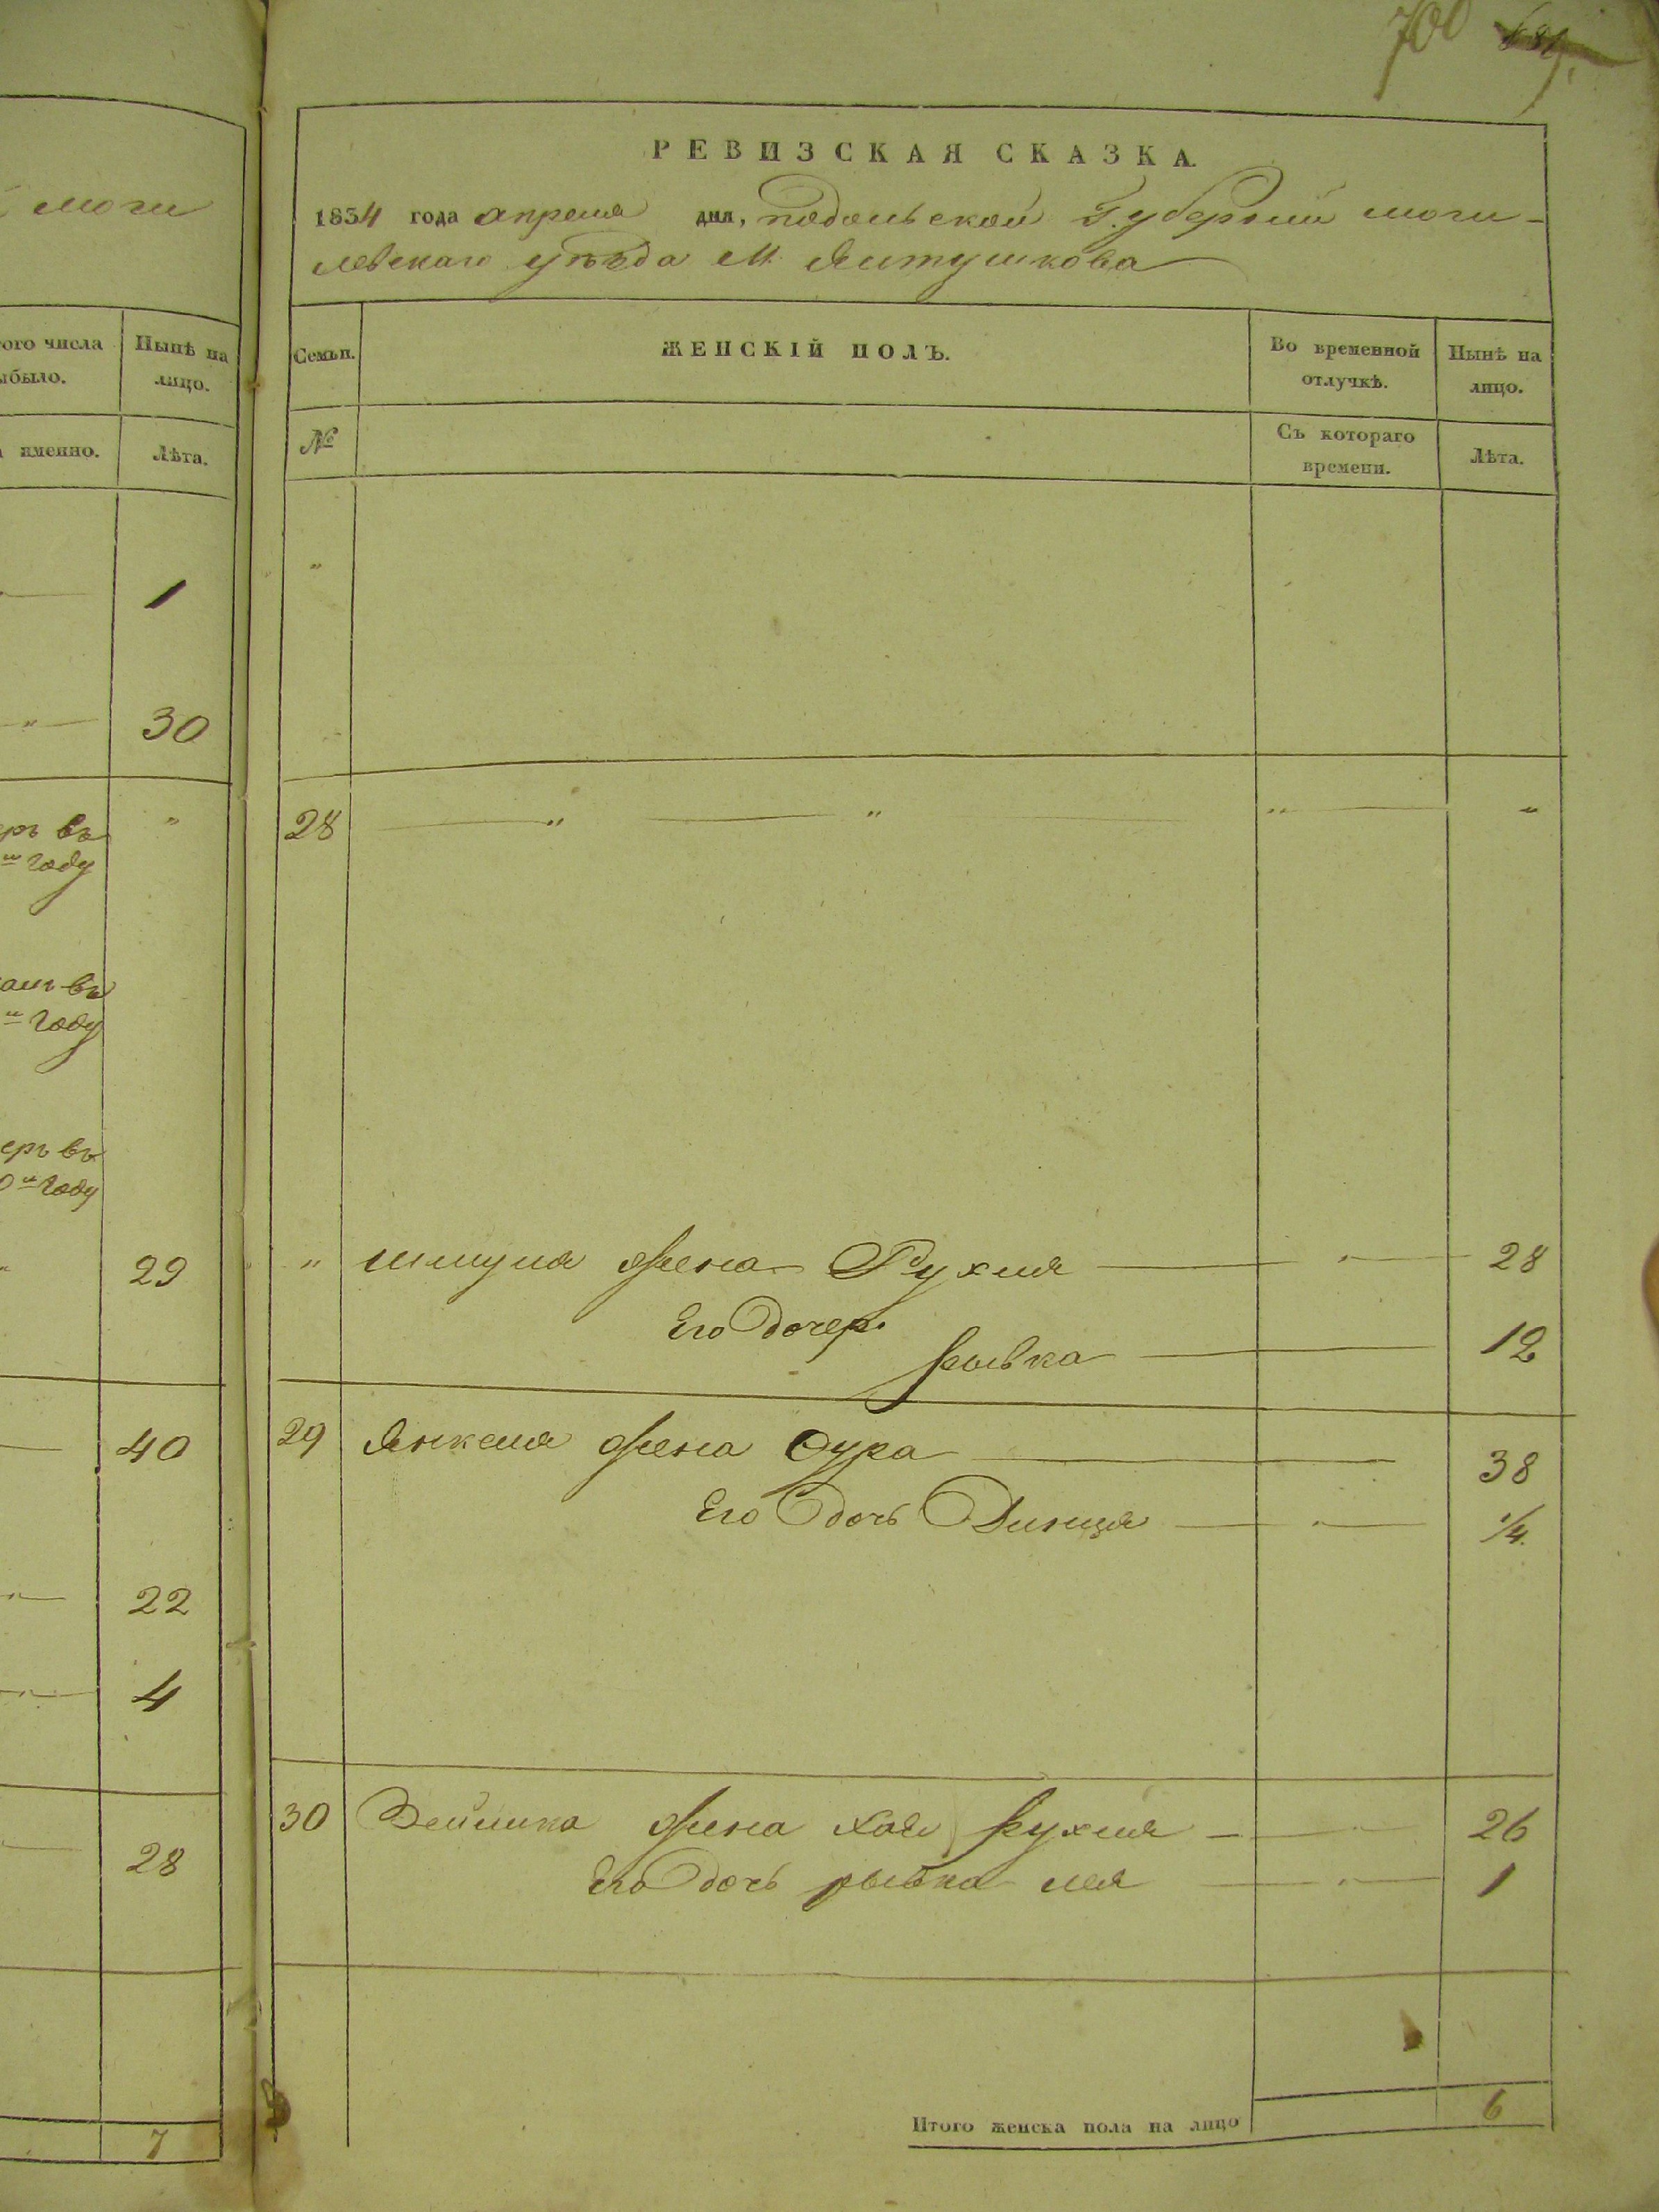 700
681
моги
ого числа
ыбыло.
Нынѣ на
лицо.
именно.
Лѣта.
1
30
еръ въ
году
въ
году
еръ въ
0 году
29
40
22
4
28
7
РЕВИЗСКАЯ СКАЗКА.
1854 года апреля дня, подольской Губернии моги-
левскаго уезда М. Ялтушкова
Семьи.
ЖЕНСКІЙ ПОЛЪ.
Во временной
отлучкѣ.
Нынѣ на
лицо.
№
Съ котораго
времени.
Лѣта.
28 " " " "
" шмуля жена Рухля " 28
Его дочер.
рывка 12
29 Янкеля жена Сура 38
Его дочь Динця " 1/4.
30 Зейлика жена хая рухля " 26
Его дочь рывка лея " 1
Итого женска пола на лицо 6